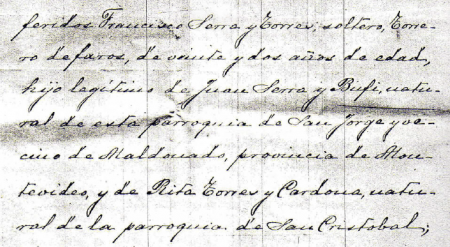 feridos Francisco Serra y Torres, soltero, Torre-
ro de faros, de veinte y dos años de edad,
hijo legítimo de Juan Serra y Bufi, natu-
ral de esta parroquia de San Jorge y ve-
cino de Maldonado, provincia de Mon-
tevideo, y de Rita Torres y Cardona, natu-
ral de la parroquia de San Cristobal,;